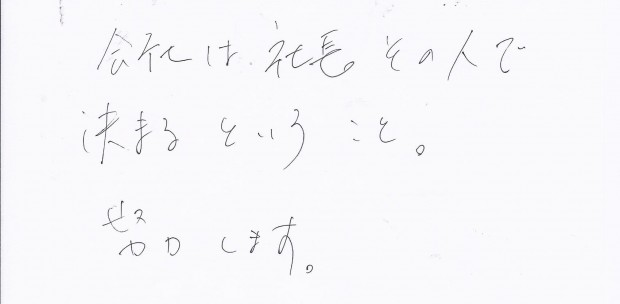 会社は社長その人で
決まるということ。
努力します。